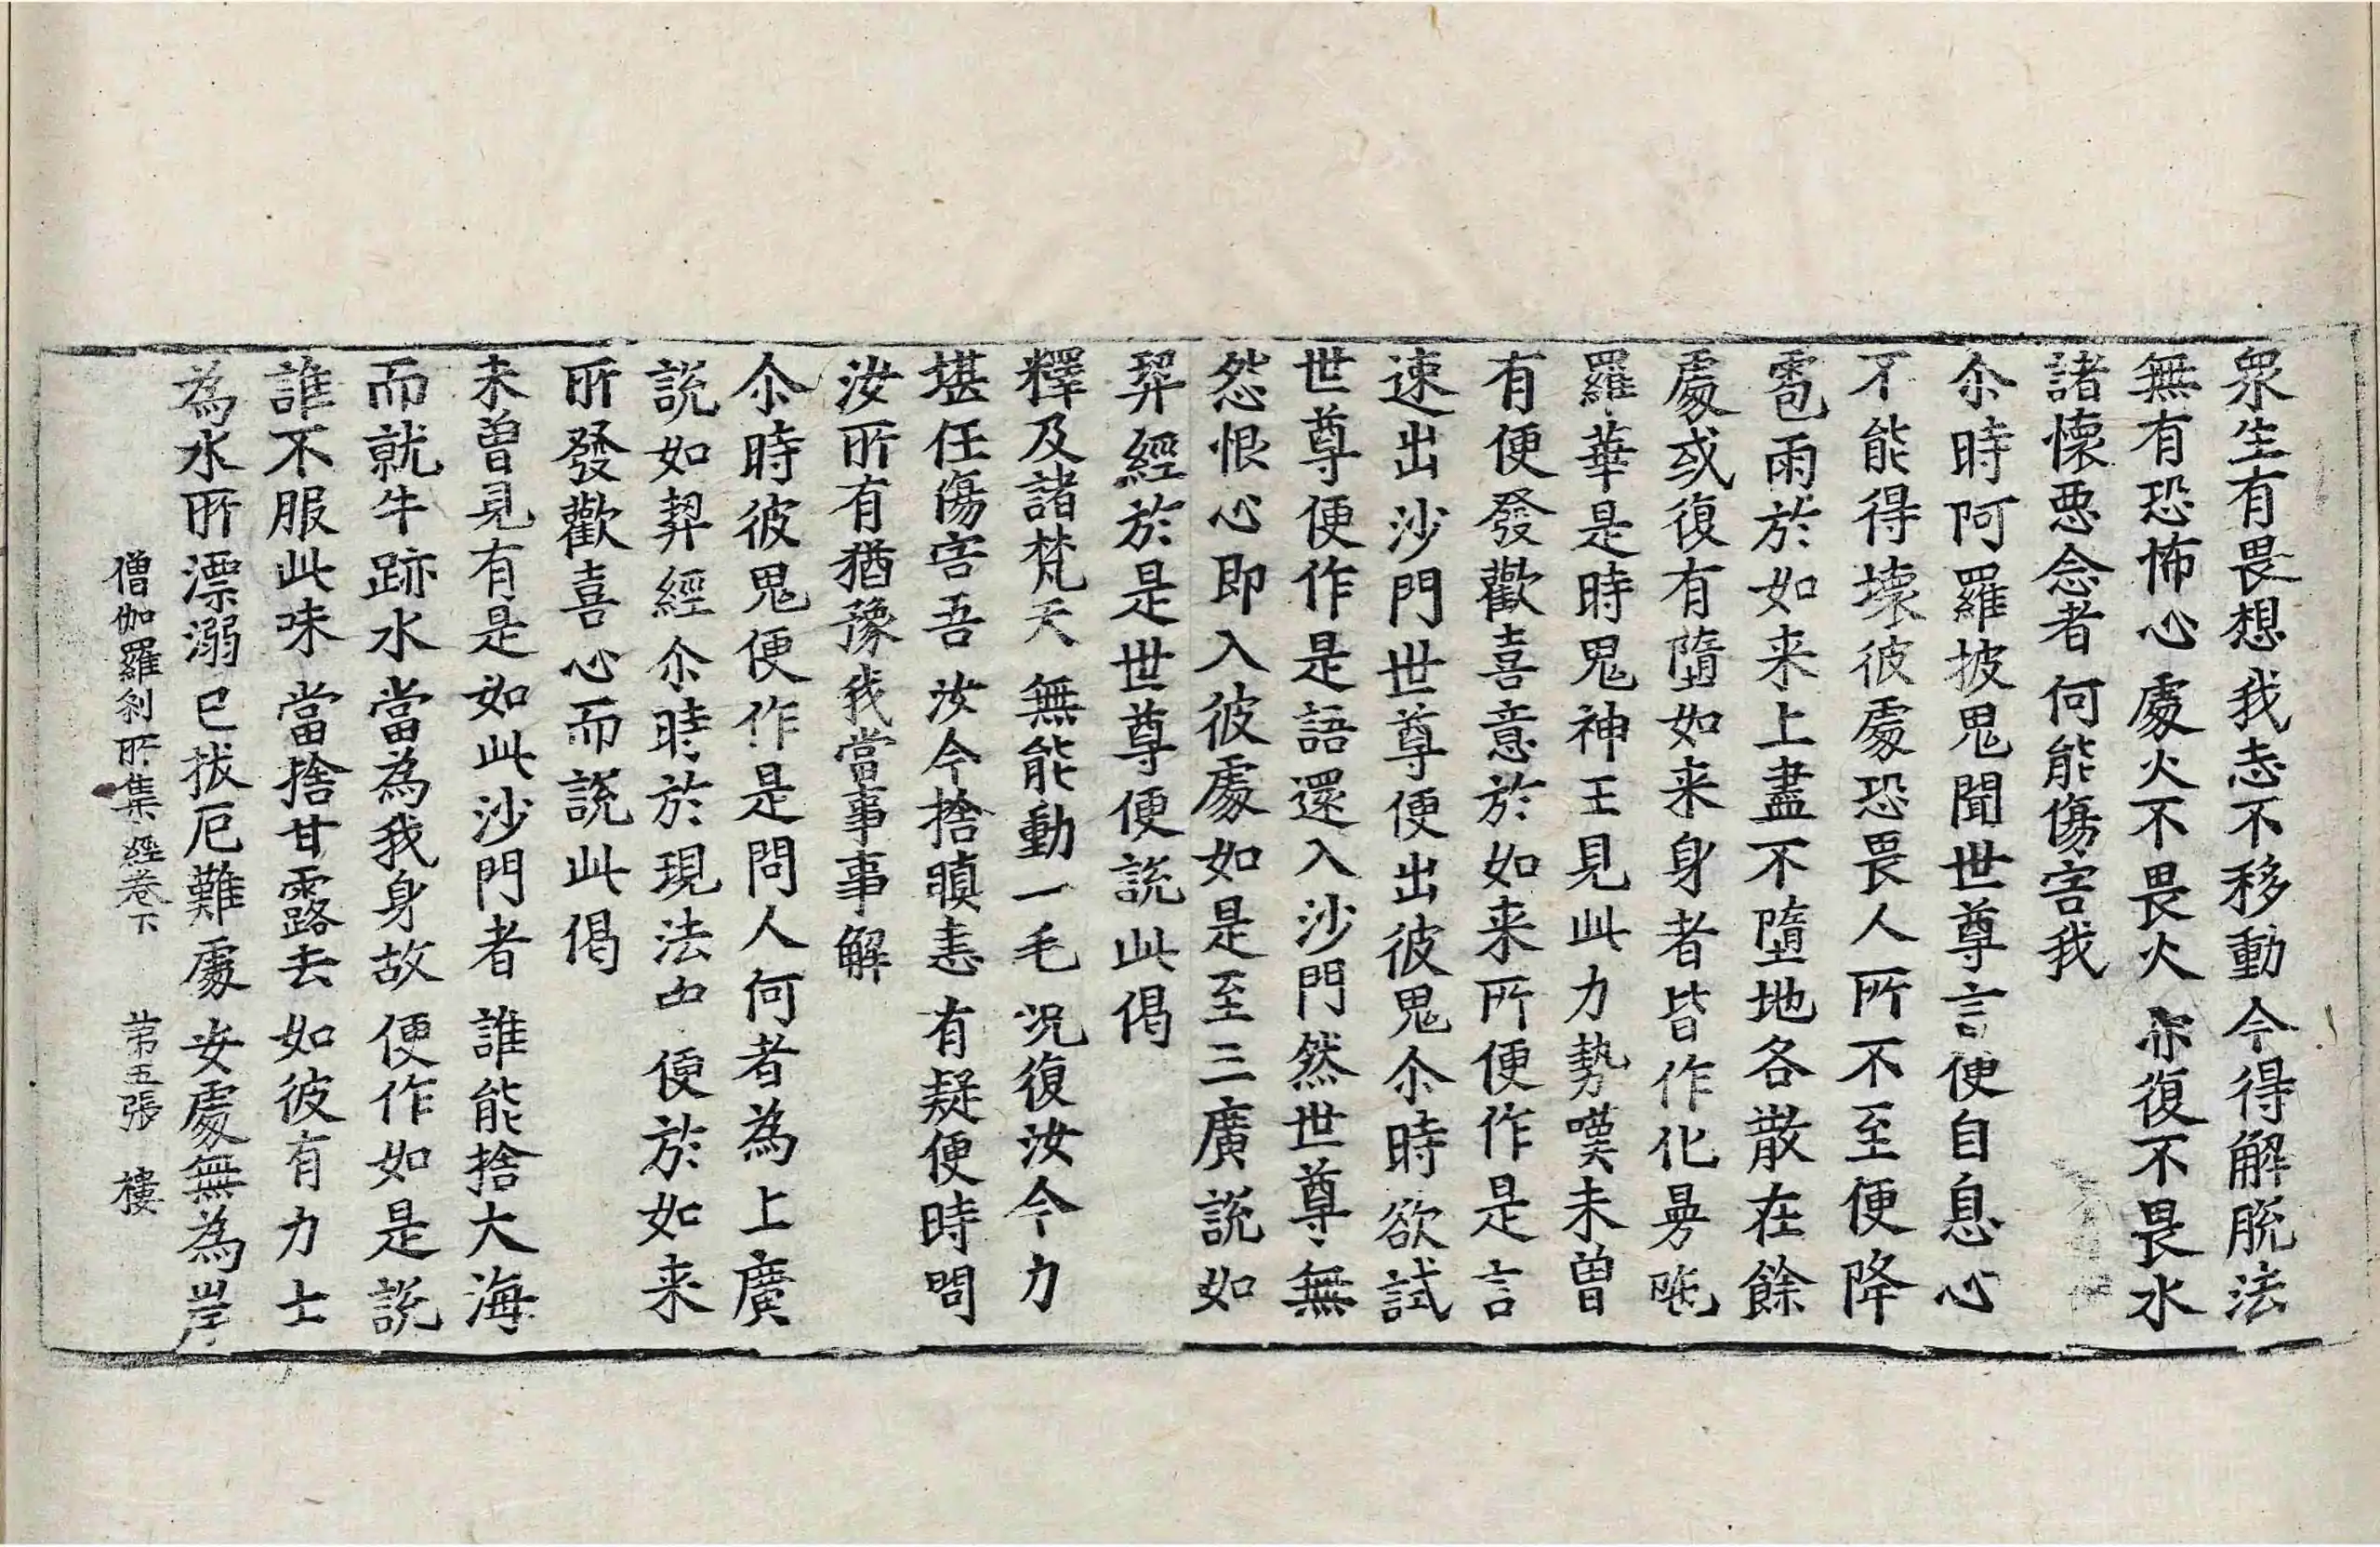 衆生有畏想 我志不移動 今得解脱法
無有恐怖心 處火不畏火 亦復不畏水
諸懷惡念者 何能傷害我
尒時阿羅披鬼聞世尊言便自息心
不能得壞彼處恐畏人所不至便降
雹雨於如来上盡不墮地各散在餘
處或復有墮如来身者皆作化曼陁
羅華是時鬼神王見此力勢嘆未曾
有便發歡喜意於如来所便作是言
速出沙門世尊便出彼鬼尒時欲試
世尊便作是語還入沙門然世尊無
怨恨心即入彼處如是至三廣説如
契經於是世尊便説此偈
釋及諸梵天 無能動一毛 况復汝今力
堪任傷害吾 汝今捨瞋恚 有疑便時問
汝所有猶豫 我當事事解
尒時彼鬼便作是問人何者為上廣
説如契經尒時於現法中便於如来
所發歡喜心而説此偈
未曾見有是 如此沙門者 誰能捨大海
而就牛跡水 當為我身故 便作如是説
誰不服此味 當捨甘露去 如彼有力士
為水所漂溺 已拔厄難處 安處無為岸
僧伽羅刹所集經卷下 第五張 樓